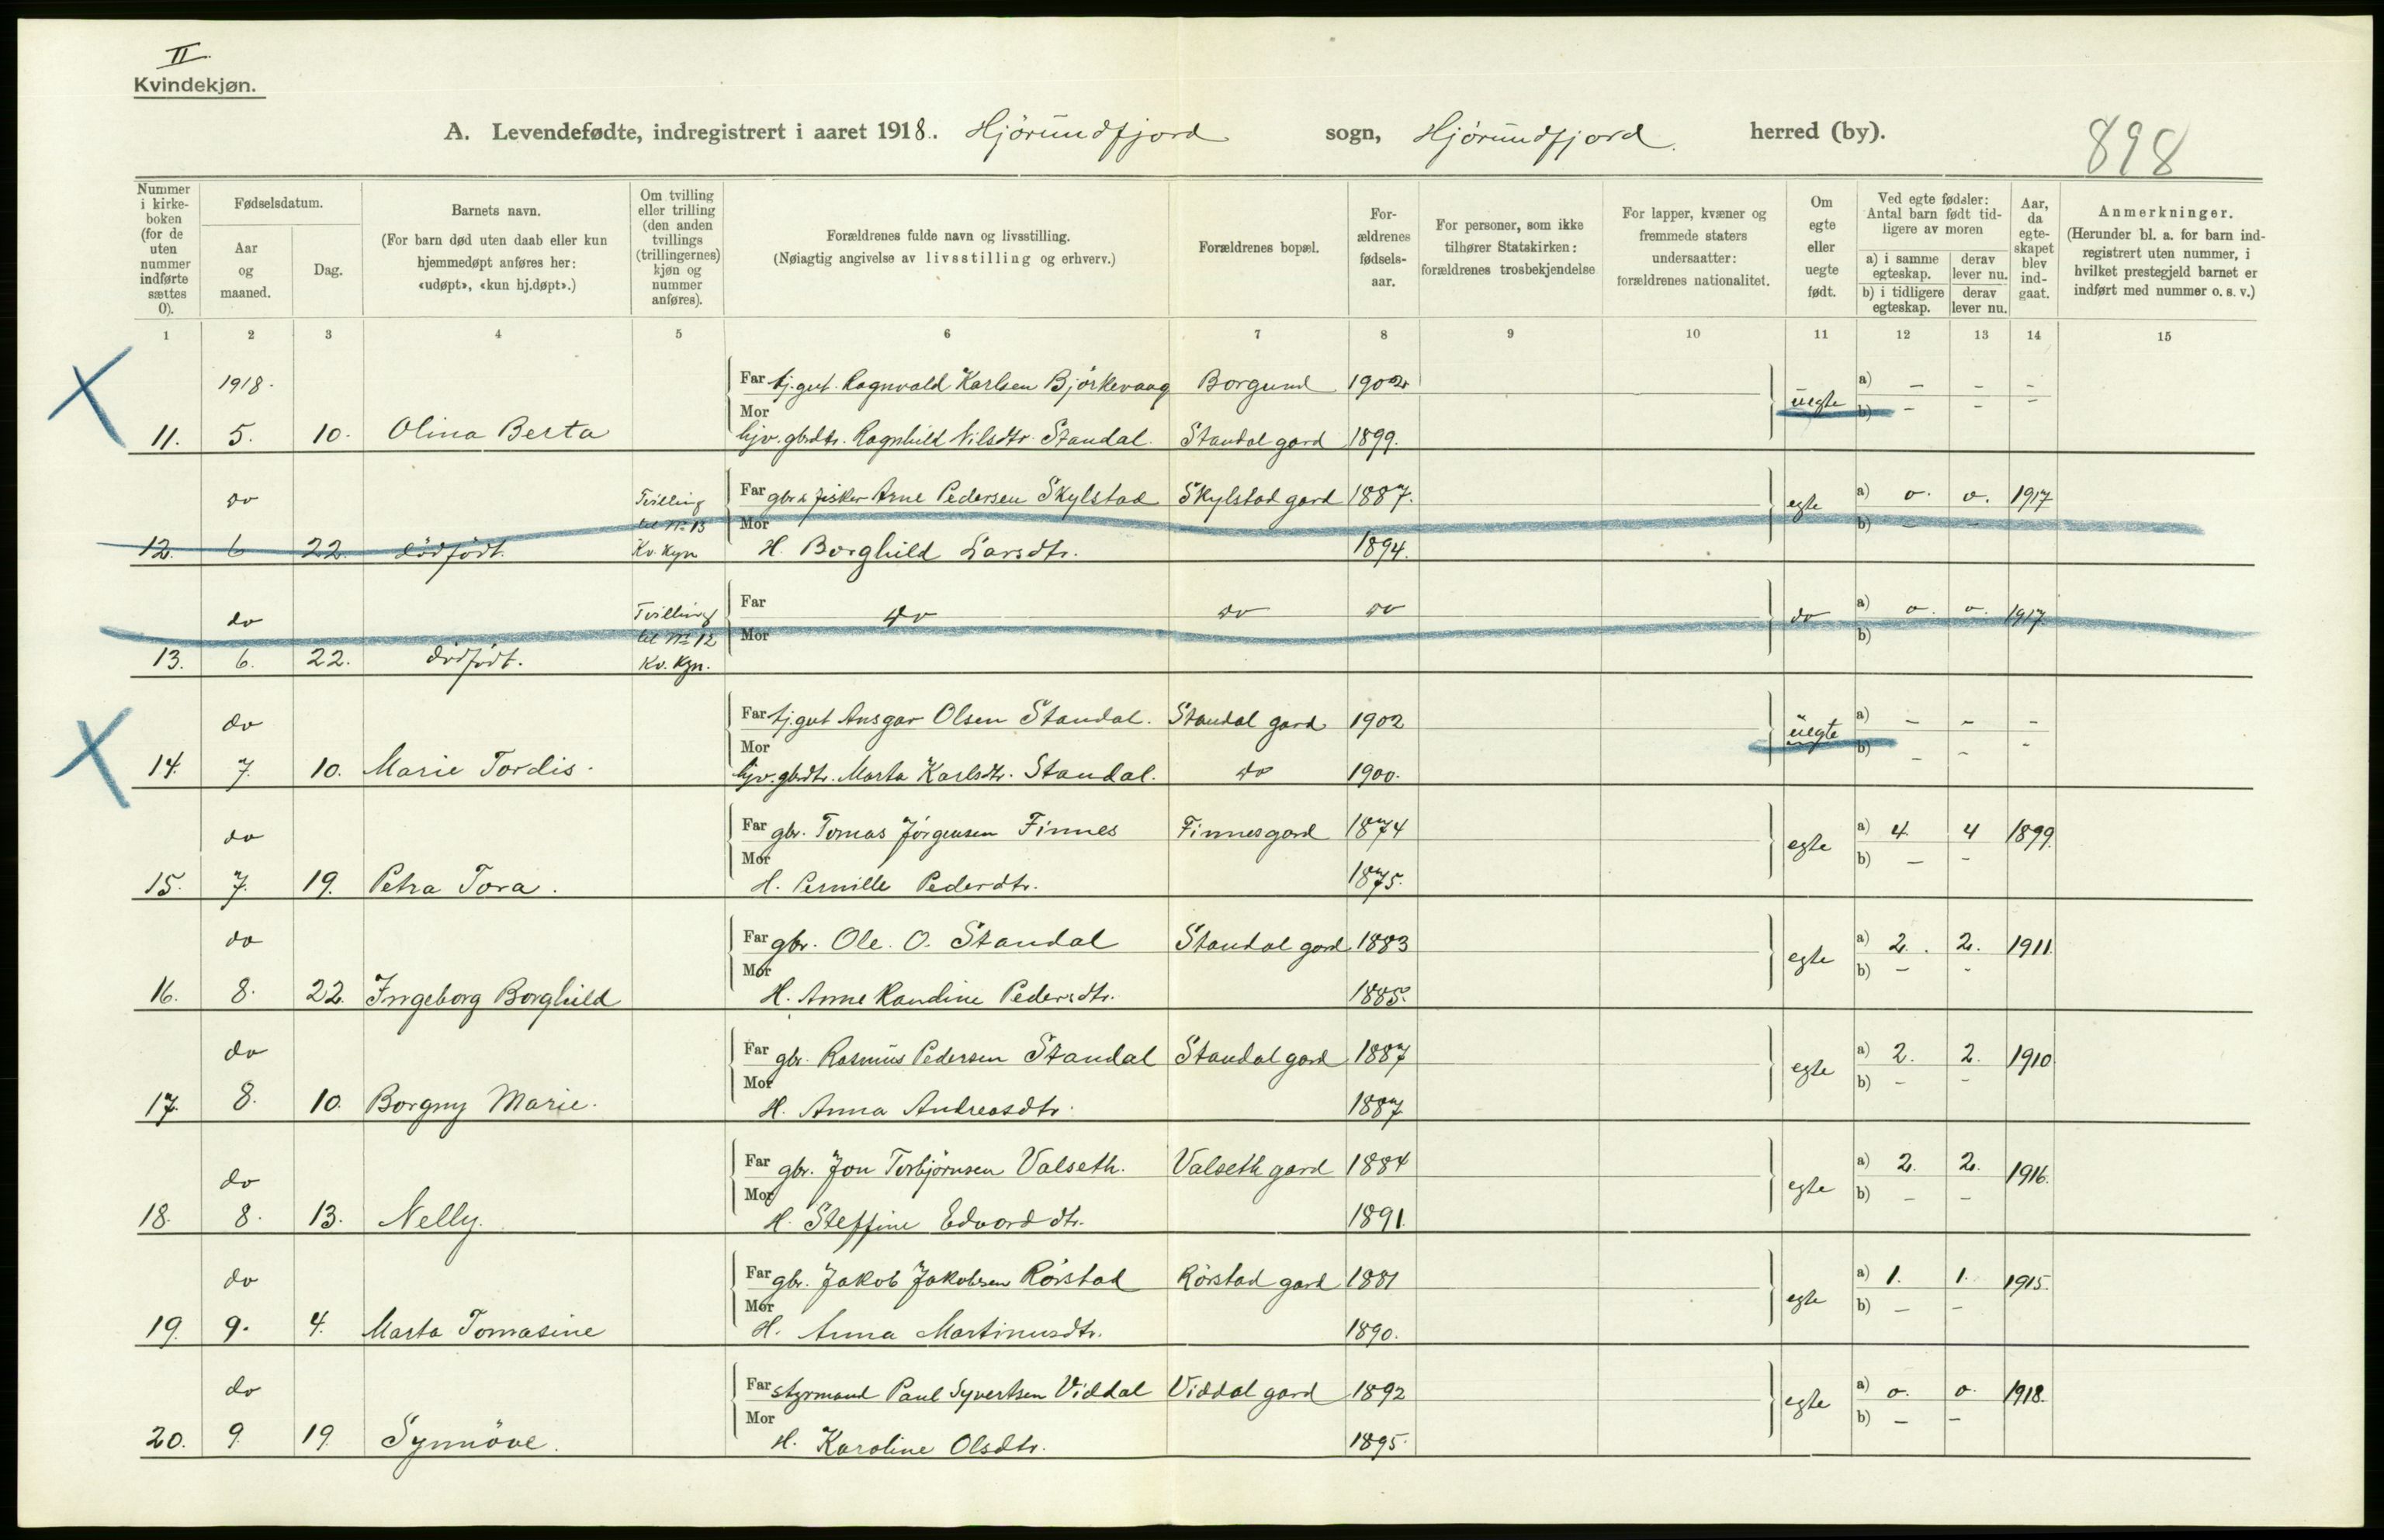 II.
Kvindekjøn.
A. Levendefødte, indregistrert i aaret 1918. Hjörundfjord sogn, Hjörundfjord herred (by).
898
Nummer i kirkeboken (for de uten nummer indførte sættes 0).
Fødselsdatum.
Aar og maaned.
Dag.
Barnets navn.
(For barn død uten daab eller kun hjemmedøpt anføres her: «udøpt», «kun hj.døpt».)
Om tvilling eller trilling (den anden tvillings (trillingernes) kjøn og nummer anføres).
Forældrenes fulde navn og livsstilling.
(Nøiagtig angivelse av livsstilling og erhverv.)
Forældrenes bopæl.
Forældrenes fødselsaar.
For personer, som ikke tilhører Statskirken: forældrenes trosbekjendelse
For lapper, kvæner og fremmede staters undersaatter: forældrenes nationalitet.
Om egte eller uegte født.
Ved egte fødsler: Antal barn født tidligere av moren
a) i samme egteskap. derav lever nu.
b) i tidligere egteskap. derav lever nu.
Aar, da egteskapet blev indgaat.
Anmerkninger.
(Herunder bl. a. for barn indregistrert uten nummer, i hvilket prestegjeld barnet er indført med nummer o. s. v.)
1 2 3 4 5 6 7 8 9 10 11 12 13 14 15
1918. Far tj.gut. Ragnvald Karlsen Björkevaag Borgund 1902 uegte a) – – –
11. 5. 10. Olina Berta Mor hjv. gbrdtr. Ragnhild Nilsdtr. Standal. Standal gard 1899. b) – – –
do Tvilling til No 13 Kv. kjn Far gbr & fisker Arne Pedersen Skylstad Skylstad gard 1887. egte a) o. o. 1917
12. 6 22. dödfödt. Mor H. Borghild Larsdtr. 1894. b) – –
do Tvilling til No 12 Kv. kjn. Far do do do do a) o. o. 1917
13. 6. 22. dödfödt. Mor b)
do Far tj.gut Ansgar Olsen Standal. Standal gard. 1902 uegte a) – – –
14. 7. 10. Marie Tordis. Mor hjv. gbrdtr. Marta Karlsdtr. Standal. do 1900. b) – – –
do Far gbr. Tomas Jörgensen Finnes Finnesgard 1874 egte a) 4 4 1899.
15. 7. 19. Petra Tora. Mor H. Pernille Pedersdtr. 1875. b) – –
do Far gbr. Ole. O. Standal Standal gard 1883 egte a) 2. 2. 1911.
16. 8. 22. Ingeborg Borghild Mor H. Anne Randine Pedersdtr. 1885. b) – –
do Far gbr. Rasmus Pedersen Standal Standal gard 1887 egte a) 2. 2. 1910
17. 8. 10. Borgny Marie. Mor H. Anna Andreasdtr. 1887 b) – –
do Far gbr. Jon Torbjörnsen Valseth. Valseth gard 1884 egte a) 2. 2. 1916.
18. 8. 13. Nelly. Mor H. Steffine Edvarddtr. 1891. b) – –
do Far gbr. Jakob Jakobsen Rörstad Rörstad gard 1881 egte a) 1. 1. 1915.
19. 9. 4. Marta Tomasine Mor H. Anna Martinusdtr. 1890. b) – –
do Far styrmand Paul Syvertsen Viddal Viddal gard 1892 egte a) o. o. 1918.
20. 9. 19. Synnöve. Mor H. Karoline Olsdtr. 1895. b) – –